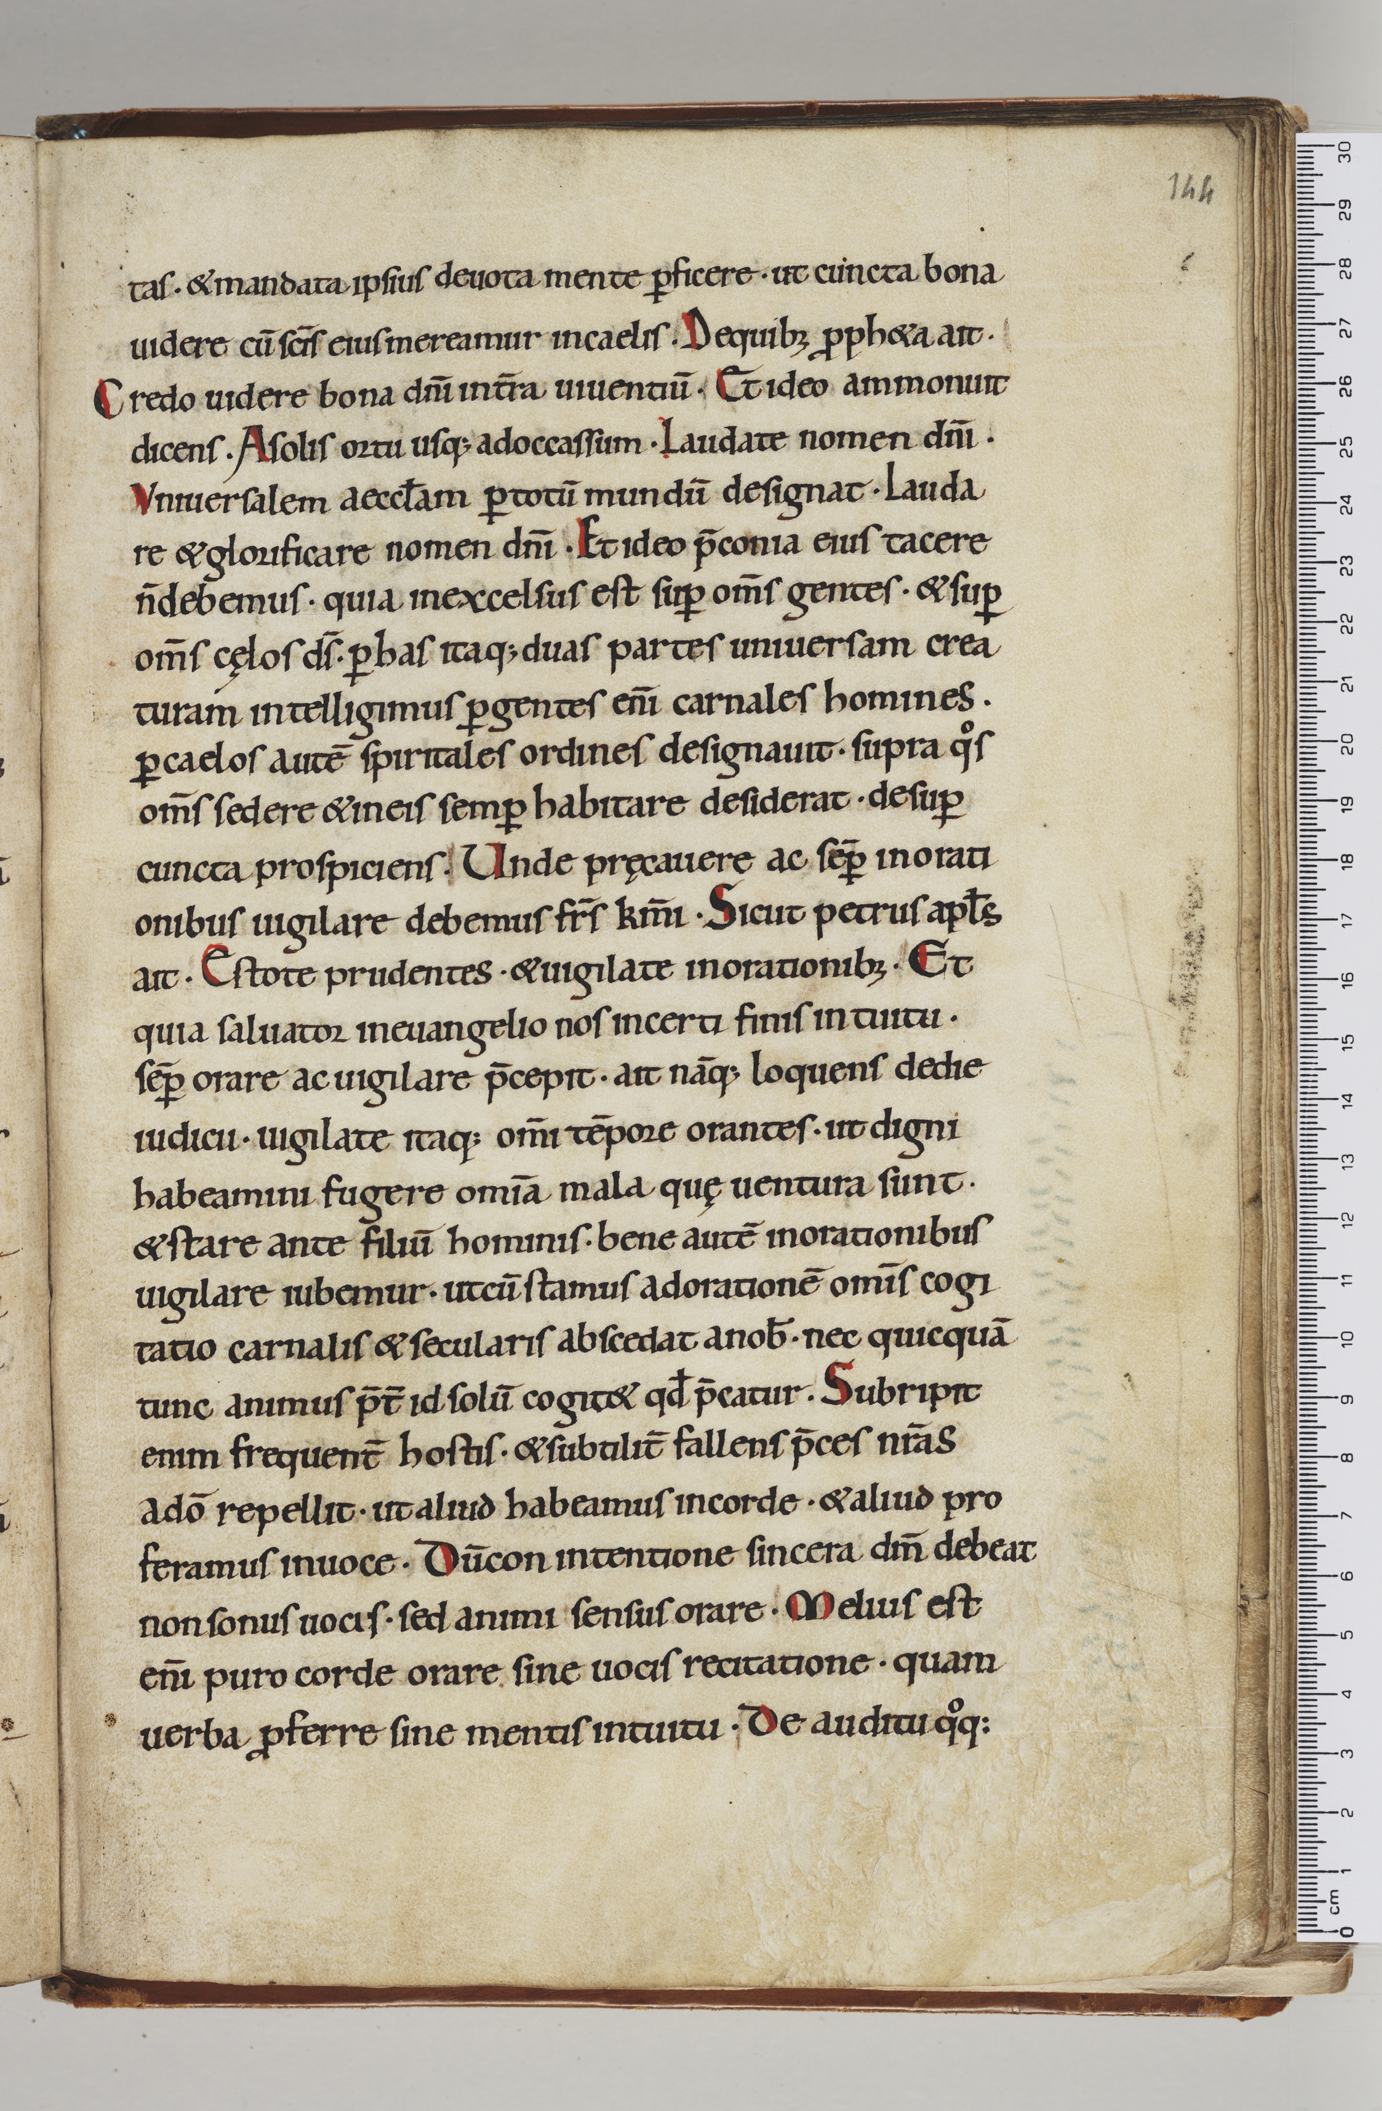 144
tas · & mandata ipsius deuota mente ꝑficere · ut cuncta bona
uidere cū sc̄is eius mereamur in caelis . De quibꝫ ꝓph&a ait ·
Credo uidere bona dn̄i in t̄ra uiuentiū . Et ideo ammonuit
dicens . A solis ortu usq; ad occassum · Laudate nomen dn̄i .
Vniuersalem aeccl̄am ꝑ totū mundū designat · Lauda
re & glorificare nomen dn̄i . Et ideo p̄conia eius tacere
n̄ debemus · quia in excelsus est suꝑ om̄s gentes · & suꝑ
om̄s cęlos ds̄ · ꝑ has itaq; duas partes uniuersam crea
turam intelligimus ꝑ gentes eni̅ carnales homines .
ꝑ caelos autē spiritales ordines designauit · supra qͦs
om̄s sedere & in eis semꝑ habitare desiderat · desuꝑ
cuncta prospiciens . Unde pręcauere ac sēꝑ in orati
onibus uigilare debemus fr̄s km̄i · Sicut petrus apl̄s
ait . Estote prudentes · & uigilate in orationibꝫ · Et
quia saluator in euangelio nos incerti finis intuitu .
sēꝑ orare ac uigilare p̄cepit · ait nāq; loquens de die
iudicii · uigilate itaq; om̄i tēpore orantes · ut digni
habeamini fugere omīa mala quę uentura sunt ·
& stare ante filiū hominis · bene autē in orationibus
uigilare iubemur · ut cū stamus ad orationē omīs cogi
tatio carnalis & secularis abscedat a nob̄ · nec quicquā
tunc animus p̄t̄ id solū cogit& qd̄ p̄catur . Subripit
enim frequent̄ hostis · & subtilit̄ fallens p̄ces nr̄as
a dō repellit · ut aliud habeamus in corde · & aliud pro
feramus in uoce . Dū con intentione sincera dm̄ debeat
non sonus uocis · sed animi sensus orare · Melius est
eni̅ puro corde orare sine uocis recitatione · quam
uerba ꝓferre sine mentis intuitu · De auditu qͦq;